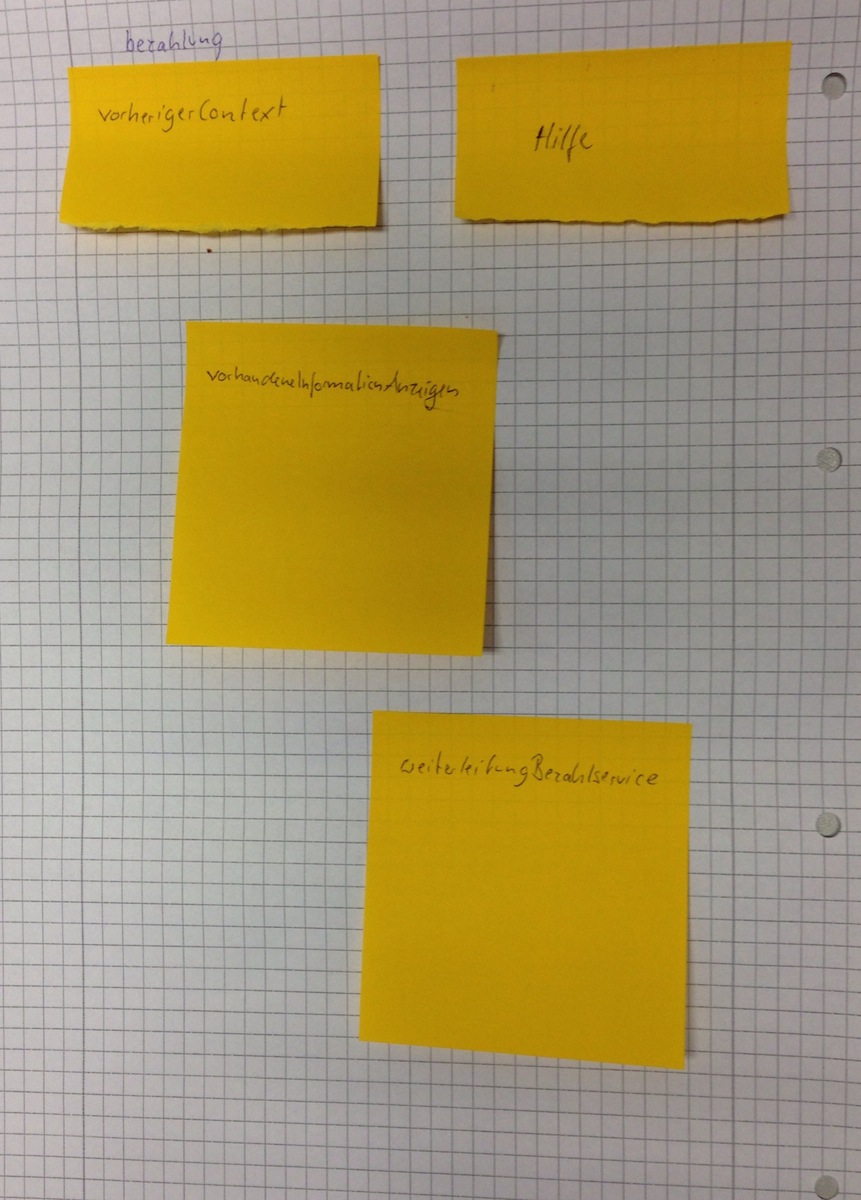 bezahlung
vorherigerContext
Hilfe
vorhandeneInformationAnzeigen
weiterleitungBezahlservice